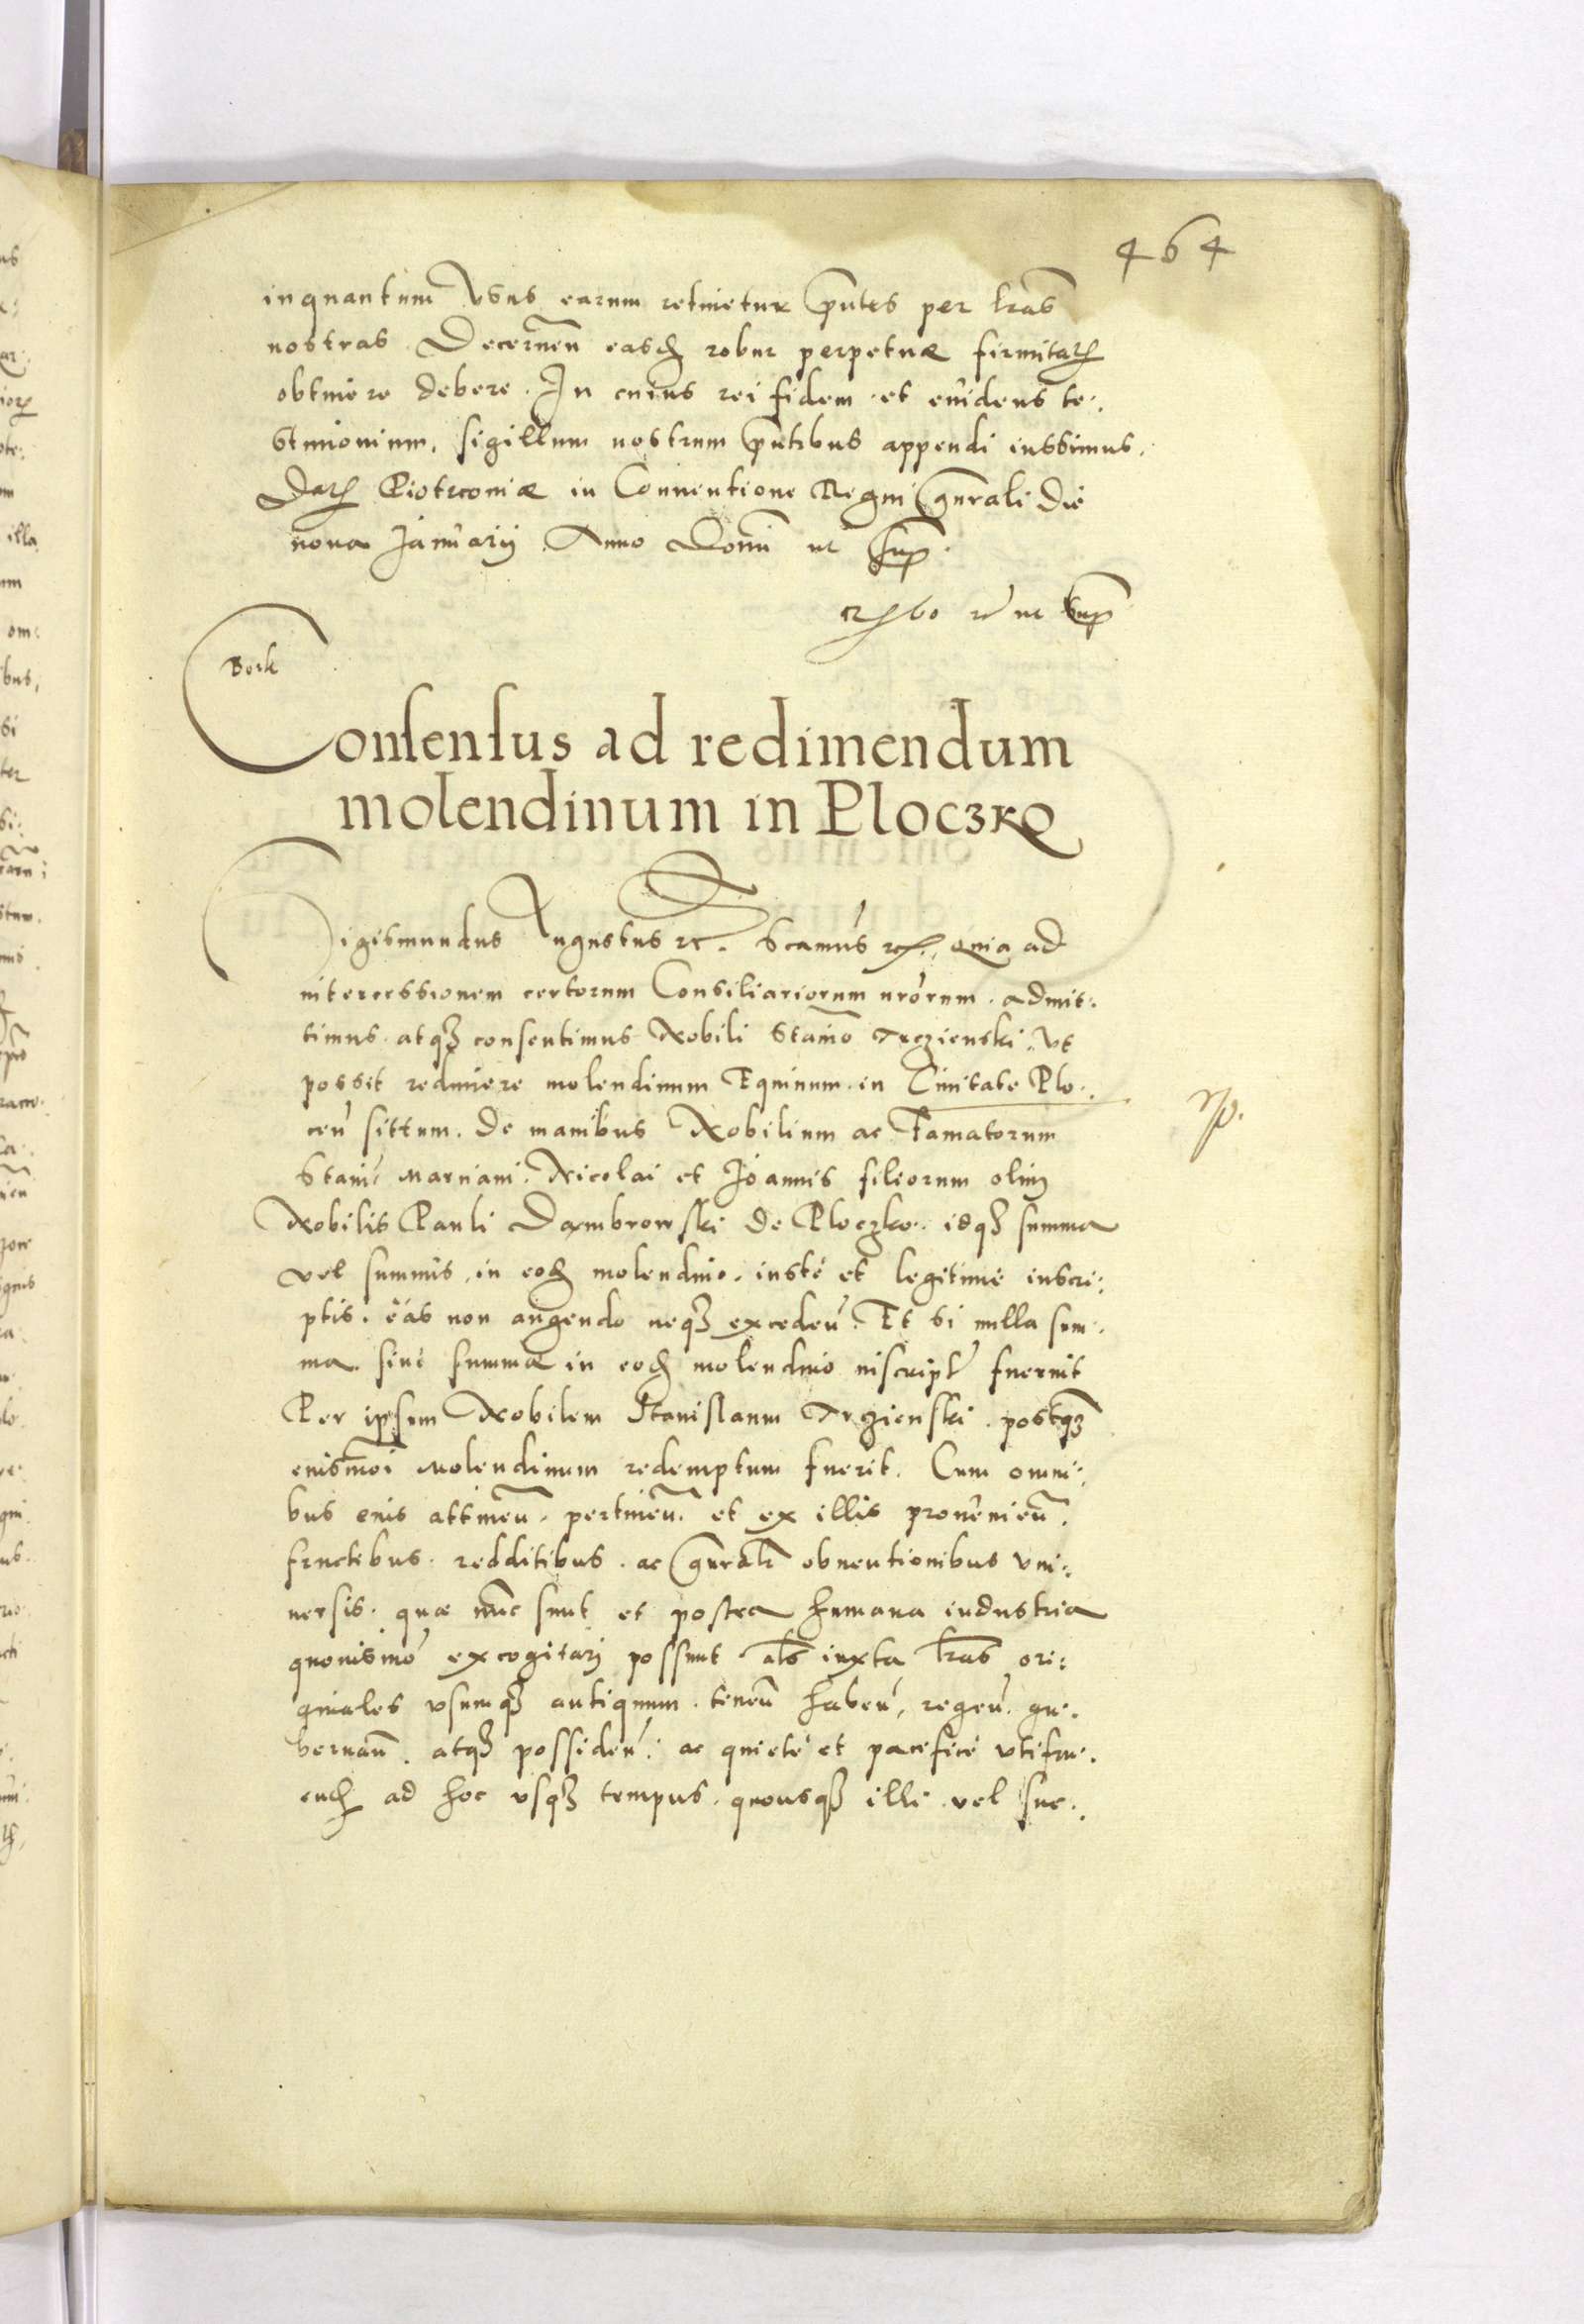 464
inquantum Usus earum retinetur pn̄tes per lr̄as
nostras Decernen̄ easdem robur perpetuæ firmitatis
obtinere debere. In cuius rei fidem et euidens te:
stimonium, sigillum nostrum pn̄tibus appendi iussimus.
Datum Piotrconiæ in Conuentione Regni gn̄rali die
nona Januarij Anno Domini ut sup̄.
ut sup̄
Bork
Consensus ad redimendum
molendinum in Ploczko
Sigismundus Augustus etc. quia ad
intercessionem certorum Consiliariorum nr̄orum. admit:
timus atq3 consentimus Nobili Stanio Trczienski. Ut
possit redimere molendinum Equinum in Ciuitate Plo:
cen̄ sittum. De manibus Nobilium ac Famatorum
Stani. Marriani. Nicolai et Joannis filiorum olim
Nobilis Pauli Dambrowski de Ploczko. isq3 summa
vel summis in eodem molendino. iuste et legitime inscri:
ptis. eas non augendo neq3 exceden̄. Et si nulla sum:
ma siue summæ in eodem molendino inscriptæ fuerint
Per ipsum Nobilem Stanislaum Trczienski. postq3
euismoi Molendinum redemptum fuerit. Cum omni:
bus euis attinen̄. pertinen̄. et ex illis prouenien̄.
fructibus. redditibus. ac gn̄ralr̄ obuentionibus vni:
uersis. quæ nunc sunt et postea humana industria
quouismo excogitari possunt als iuxta lr̄as ori:
ginales vsumq3 antiquum. tenen̄ haben̄, regen̄. gu:
bernan̄. atq3 possiden̄. ac quiete et pacifice vtifru:
endum ad hoc vsq3 tempus. quousq3 illi vel suc: